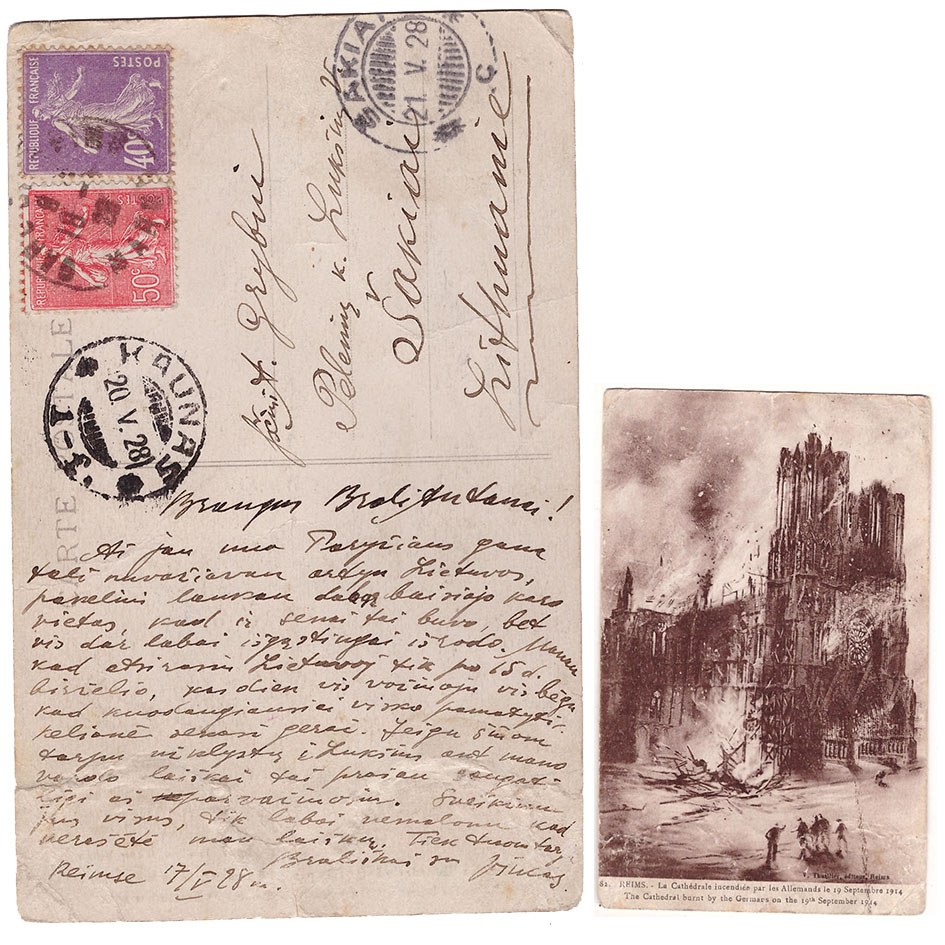 REPUBLIQUE FRANÇAISE
POSTES
40c
REPUBLIQUE FRANÇAISE
POSTES
50c
ŠAKIAI
21.V.28
C
KAUNAS
20.V.28
Antanui
Grybui
k. Lukšių
Šakiai
Lithuanie
Brangus Broli Antanai!
Aš jau nuo Paryžiaus gana
toli nuvažiavau Lietuvos,
laukan baisiojo karo
vietas kad ir senai tai buvo, bet
vis dar labai išgąstingai išrodo. Manau
kad Lietuvoj tik po 15 d.
birželio, kasdien vis važinoju vis bėgu
kad kuodaugiausiai visko pamatyti.
kelionė sekasi gerai. Jeigu šiuom
tarpu į Lukšius ant mano
vardo laiškai tai prašau
ligi aš parvažiuosiu. Sveikinu
jus visus, tik labai nemalonu kad
nerašėte man laiškų. Tiek
Broliškai su
Reimse 17/V 28 m.
82. REIMS. - La Cathédrale incendiée par les Allemands le 19 Septembre 1914
The Cathedral burnt by the Germans on the 19th September 1914